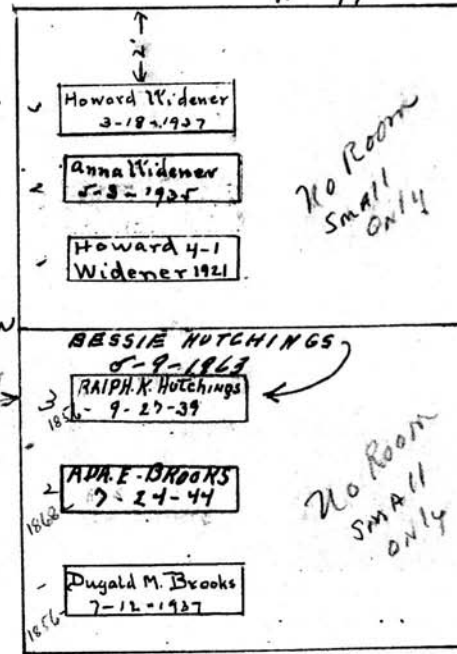 2'
Howard Widener
3-18-1937
2
Anna Widener
5-3-1935
Howard 4-1
Widener 1921
No Room
Small
Only
BESSIE HUTCHINGS
5-9-1963
3
RALPH. K. Hutchings
9-27-39
2
1868
ADA. E. BROOKS
7-24-44
1856
Dugald M. Brooks
7-12-1937
No Room
Small
Only